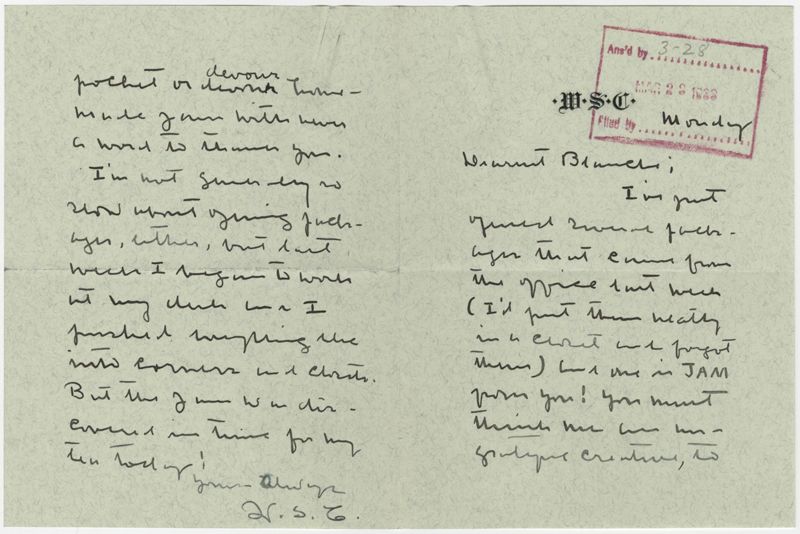 ·W·S·C·
Ans'd by 3-28
MAR 28 1933
Filed by
Monday
Dearest Blanche;
I've just
opened several pack-
ages that came from
the office last week
(I'd put them neatly
in a closet and forgot
them) and one is JAM
from you! You must
think me an un-
grateful creature, to
pocket or devour home-
devour
made jam with never
a word to thank you.
I'm not generally so
slow about opening pack-
ages, either, but last
week I began to work
at my desk and I
pushed everything else
into corners and closets.
But the jam was dis-
covered in time for my
tea today!
Yours Always
W. S. C.